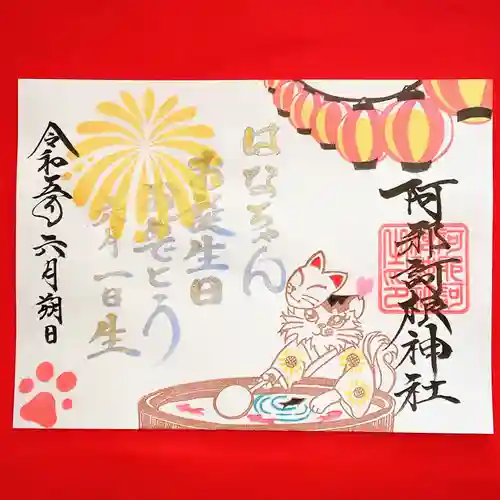 阿邪訶根神社
はなちゃん
お誕生日
おめでとう
六月一日生
令和五年
六月朔日